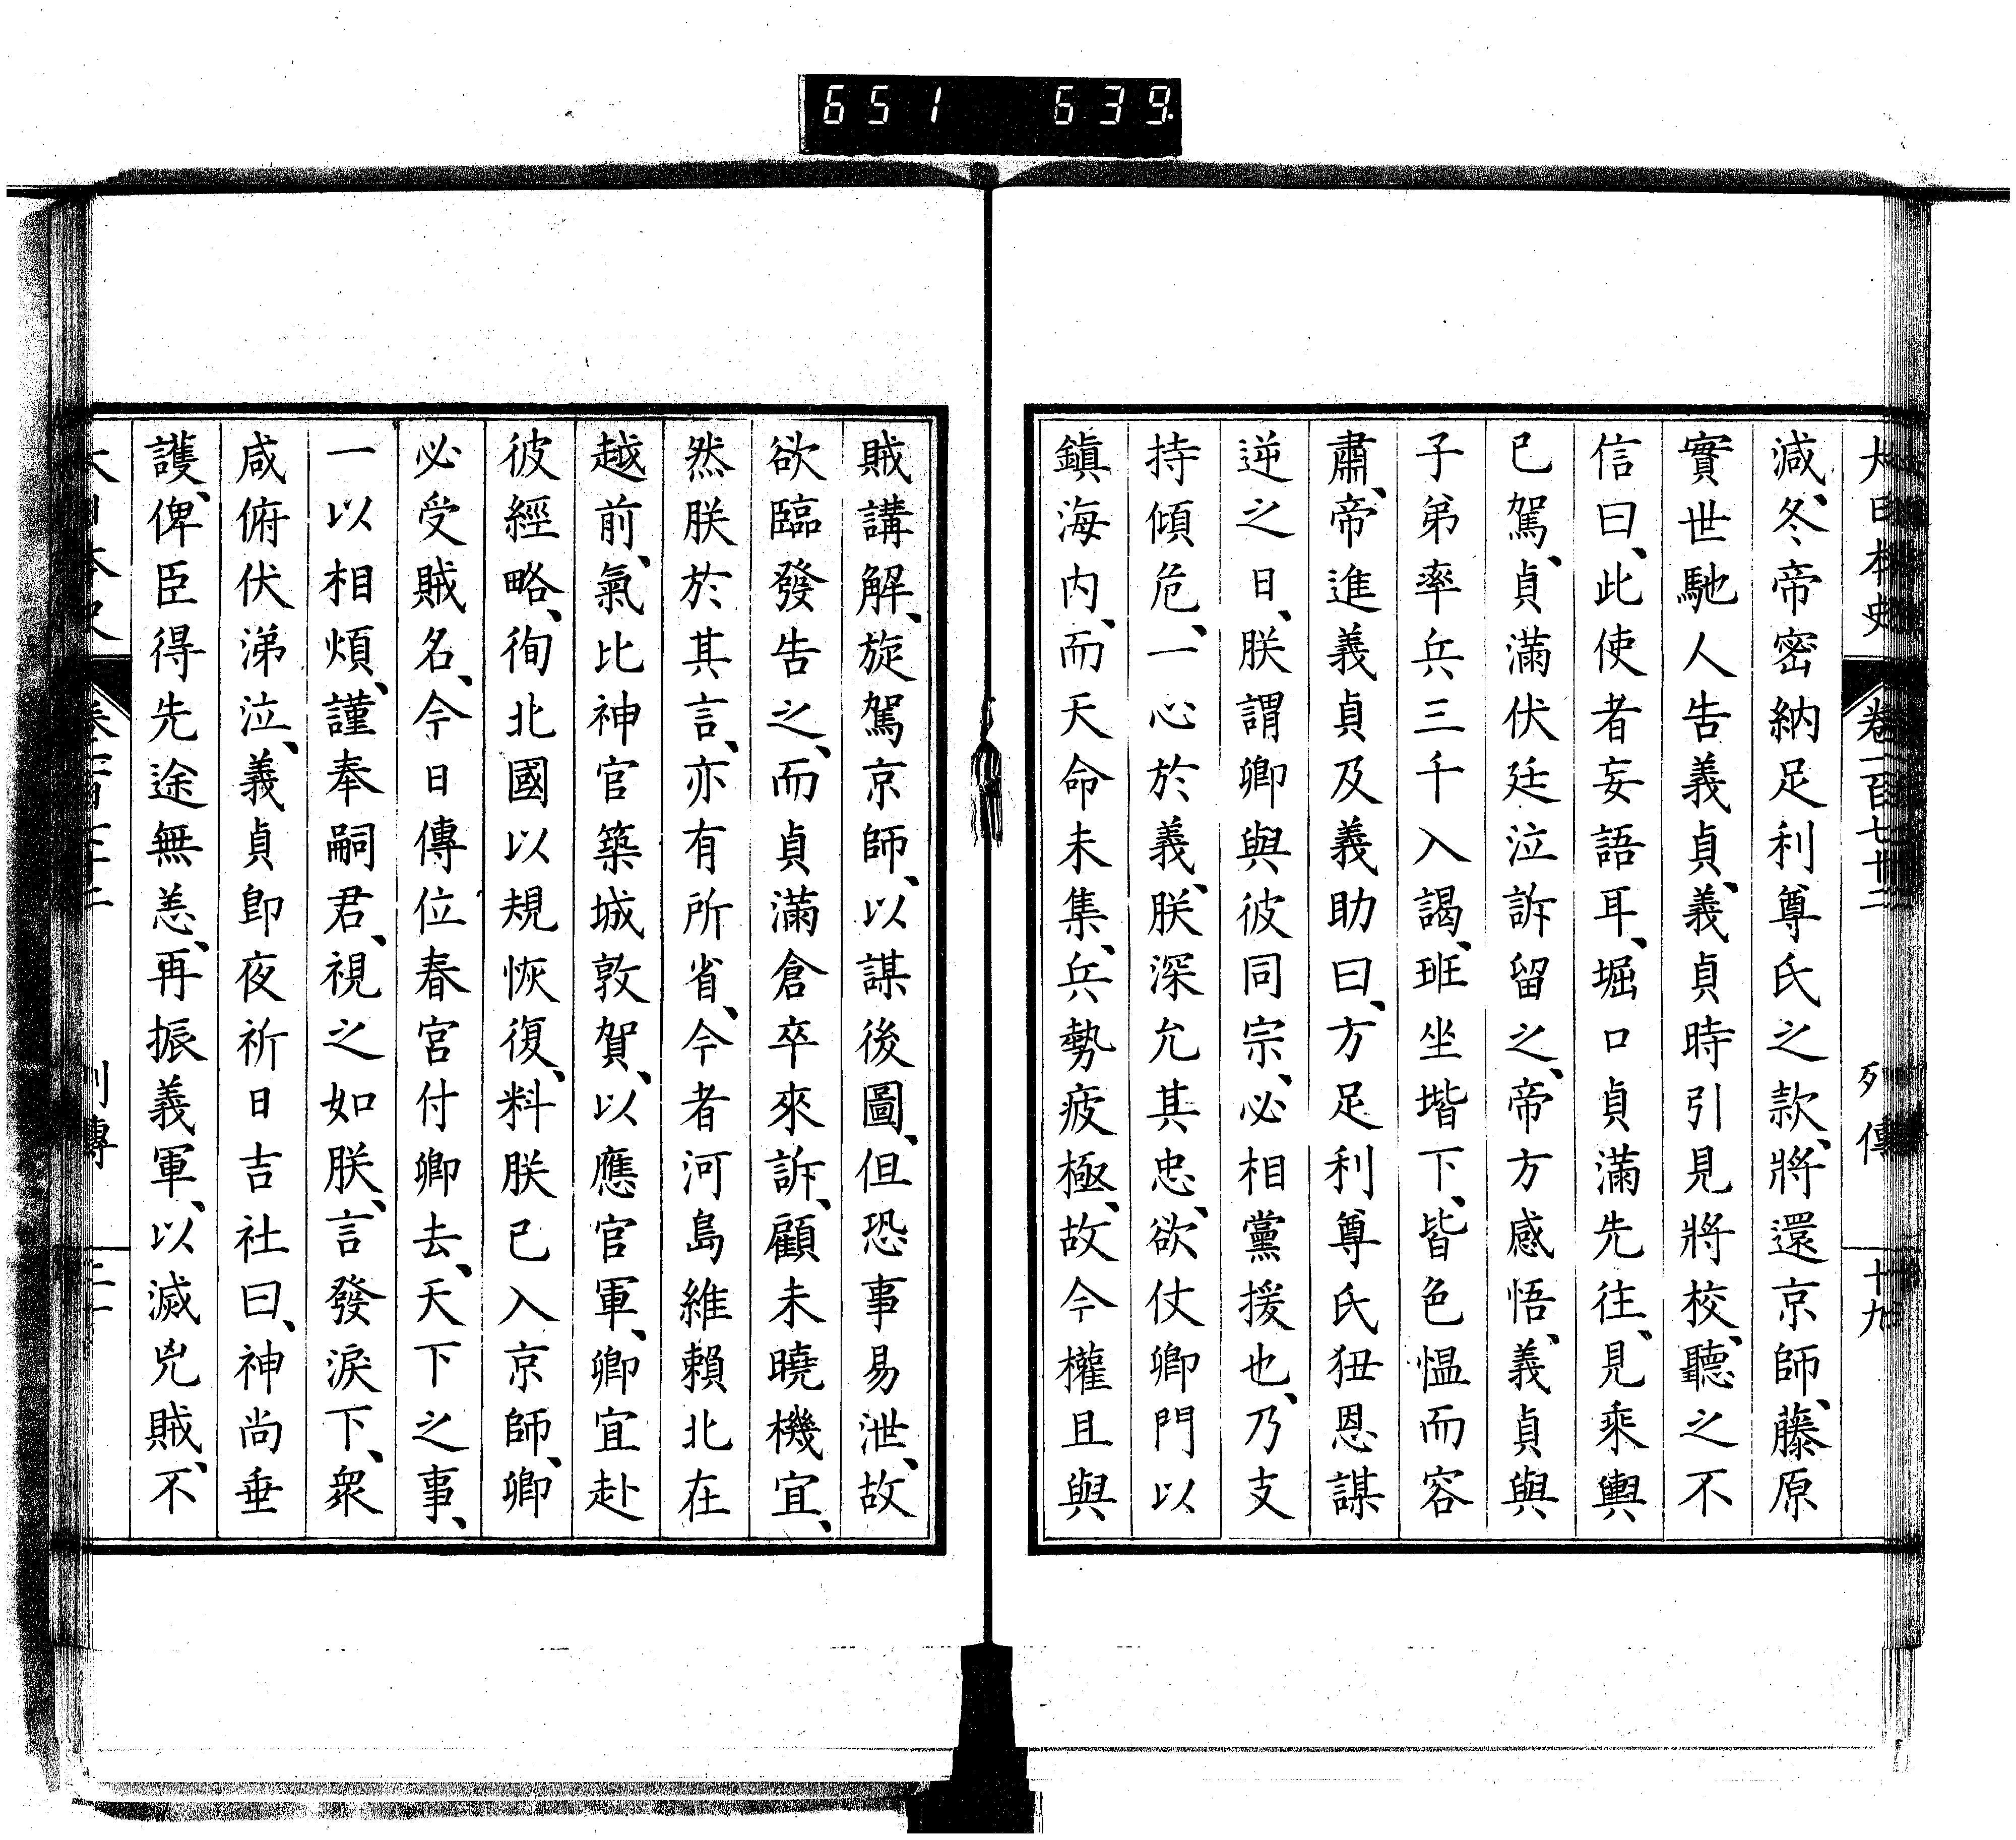 651 639
大日本史 卷一百七十二 列傳 十九
減、冬帝密納足利尊氏之款、將還京師、藤原
實世馳人告義貞、義貞時引見將校、聽之不
信曰、此使者妄語耳、堀口貞滿先往、見乘輿
已駕、貞滿伏廷泣訴留之、帝方感悟、義貞與
子弟率兵三千入謁、班坐堦下、皆色慍而容
肅、帝進義貞及義助曰、方足利尊氏狃恩謀
逆之日、朕謂卿與彼同宗、必相黨援也、乃支
持傾危、一心於義、朕深允其忠、欲仗卿門以
鎭海内、而天命未集、兵勢疲極、故今權且與
賊講解、旋駕京師、以謀後圖、但恐事易泄、故
欲臨發告之、而貞滿倉卒來訴、顧未曉機宜、
然朕於其言、亦有所省、今者河島維賴北在
越前、氣比神官築城敦賀、以應官軍、卿宜赴
彼經略、徇北國以規恢復、料朕已入京師、卿
必受賊名、今日傳位春宮付卿去、天下之事、
一以相煩、謹奉嗣君、視之如朕、言發淚下、衆
咸俯伏涕泣、義貞卽夜祈日吉社曰、神尚垂
護、俾臣得先途無恙、再振義軍、以滅兇賊、不